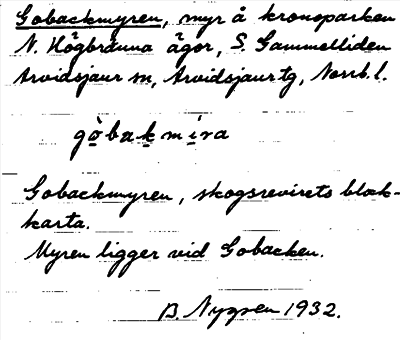 Gobackmyren, myr å kronoparken
N. Högbråuna ägor, S. Gammelliden
Arvidsjaur sn, Arvidsjaur tg, Norrb. l.
gòbakmíra
Gobackmyren, skogsrevirets block-
karta.
Myren ligger vid Gobacken.
B. Nygren 1932.